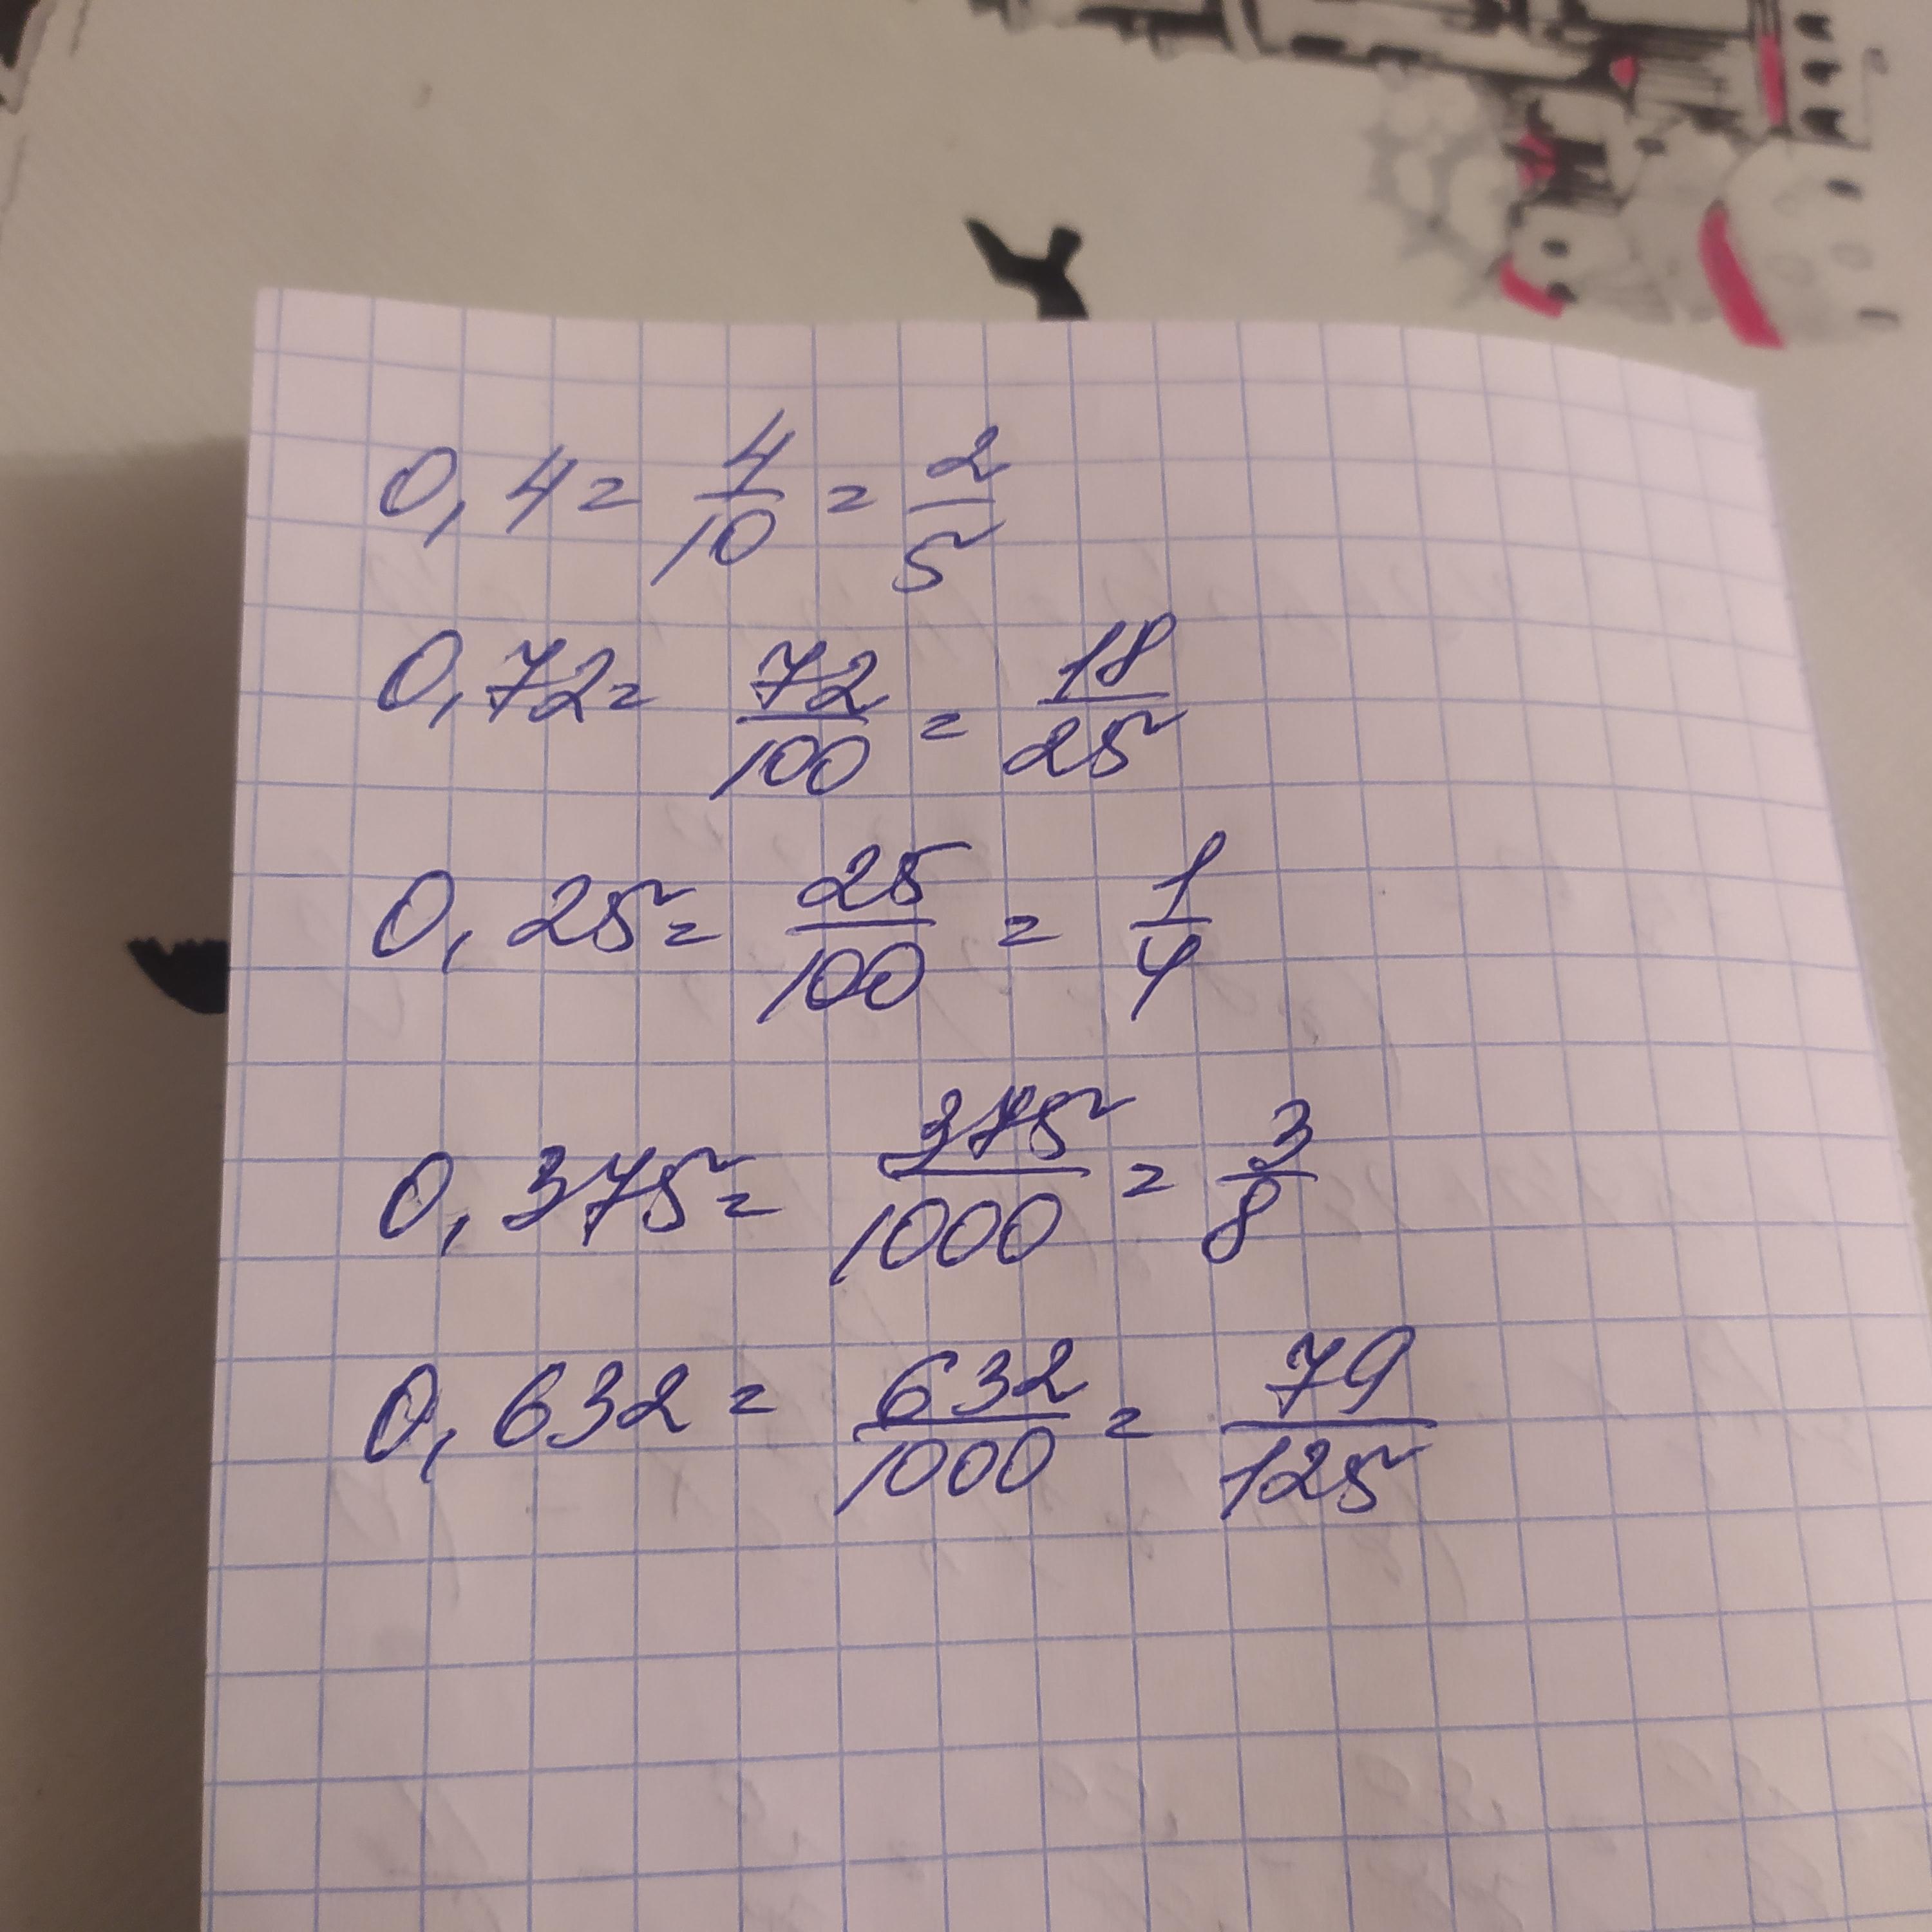 0,4 = 4/10 = 2/5
0,72 = 72/100 = 18/25
0,25 = 25/100 = 1/4
0,375 = 375/1000 = 3/8
0,632 = 632/1000 = 79/125